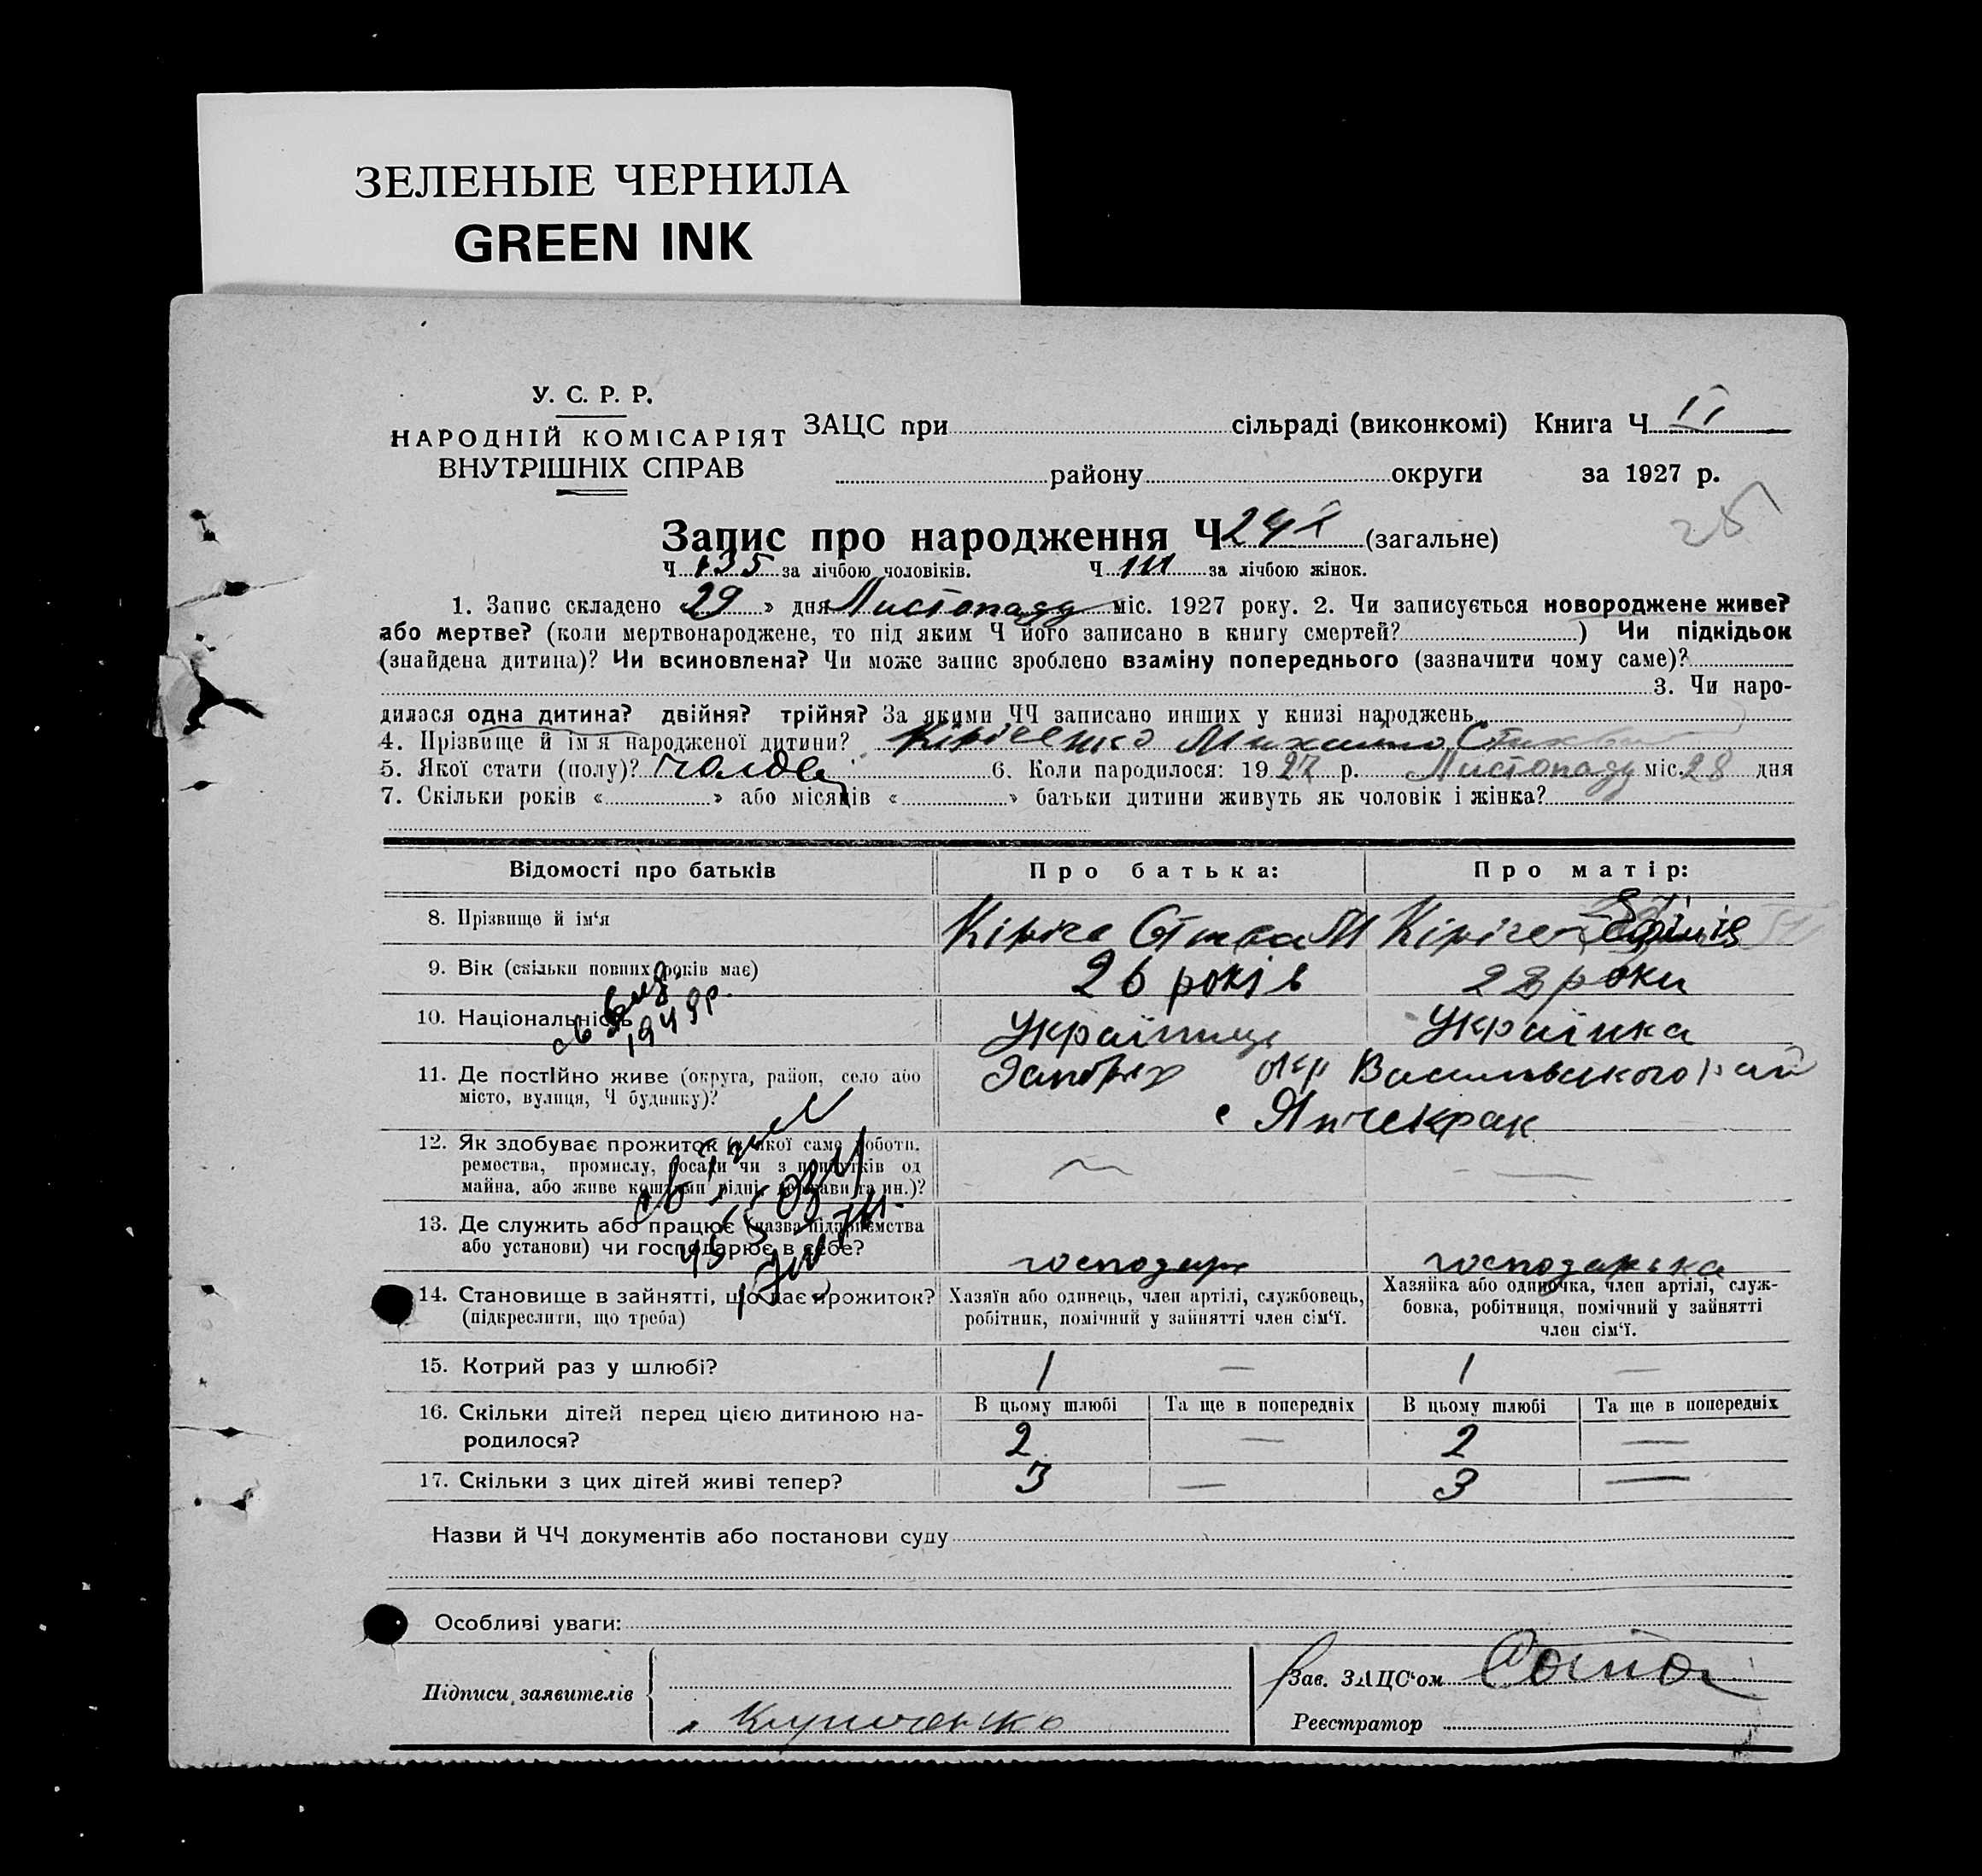 ЗЕЛЕНЫЕ ЧЕРНИЛА
GREEN INK
У. С. Р. Р.
НАРОДНІЙ КОМІСАРІЯТ
ВНУТРІШНІХ СПРАВ
ЗАЦС при сільраді (виконкомі) Книга Ч II
району округи за 1927 р.
25
Запис про народження Ч (загальне)
Ч 135 за лічбою чоловіків. Ч 111 за лічбою жінок.
1. Запис складено « 29 » дня Листопаду міс. 1927 року. 2. Чи записується новороджене живе?
або мертве? (коли мертвонароджене, то під яким Ч його записано в книгу смертей? ) Чи підкідьок
(знайдена дитина)? Чи всиновлена? Чи може запис зроблено взаміну попереднього (зазначити чому саме)?
3. Чи наро-
дилася одна дитина? двійня? трійня? За якими ЧЧ записано инших у книзі народжень
4. Прізвище й ім'я народженої дитини? Михайло
5. Якої стати (полу)? чолов 6. Коли народилося: 19 27 р. Листопаду міс. 28 дня
7. Скільки років « » або місяців « » батьки дитини живуть як чоловік і жінка?
Відомості про батьків Про батька: Про матір:
8. Прізвище й ім'я
9. Вік (скільки повних років має) 26 років роки
10. Національність Українець Українка
11. Де постійно живе (округа, район, село або
місто, вулиця, Ч будинку)? окр Василівського рай
с Янчекрак
12. Як здобуває прожиток з якої само роботи,
ремества, промислу, посади чи з прибутків од
майна, або живе коштами рідні, держави та ин.)?
13. Де служить або працює (назва підприємства
або установи) чи господарює в себе? господар господарька
14. Становище в зайнятті, що дає прожиток?
(підкреслити, що треба)
Хазяїн або одинець, член артілі, службовець,
робітник, помічний у зайнятті член сім'ї.
Хазяйка або одиночка, член артілі, служ-
бовка, робітниця, помічний у зайнятті
член сім'ї.
15. Котрий раз у шлюбі? 1 — 1 —
16. Скільки дітей перед цією дитиною на-
родилося?
В цьому шлюбі Та ще в попередніх В цьому шлюбі Та ще в попередніх
2 — 2 —
17. Скільки з цих дітей живі тепер? 3 — 3 —
Назви й ЧЧ документів або постанови суду
Особливі уваги:
Підписи заявителів
Зав. ЗАЦС'ом
Реєстратор